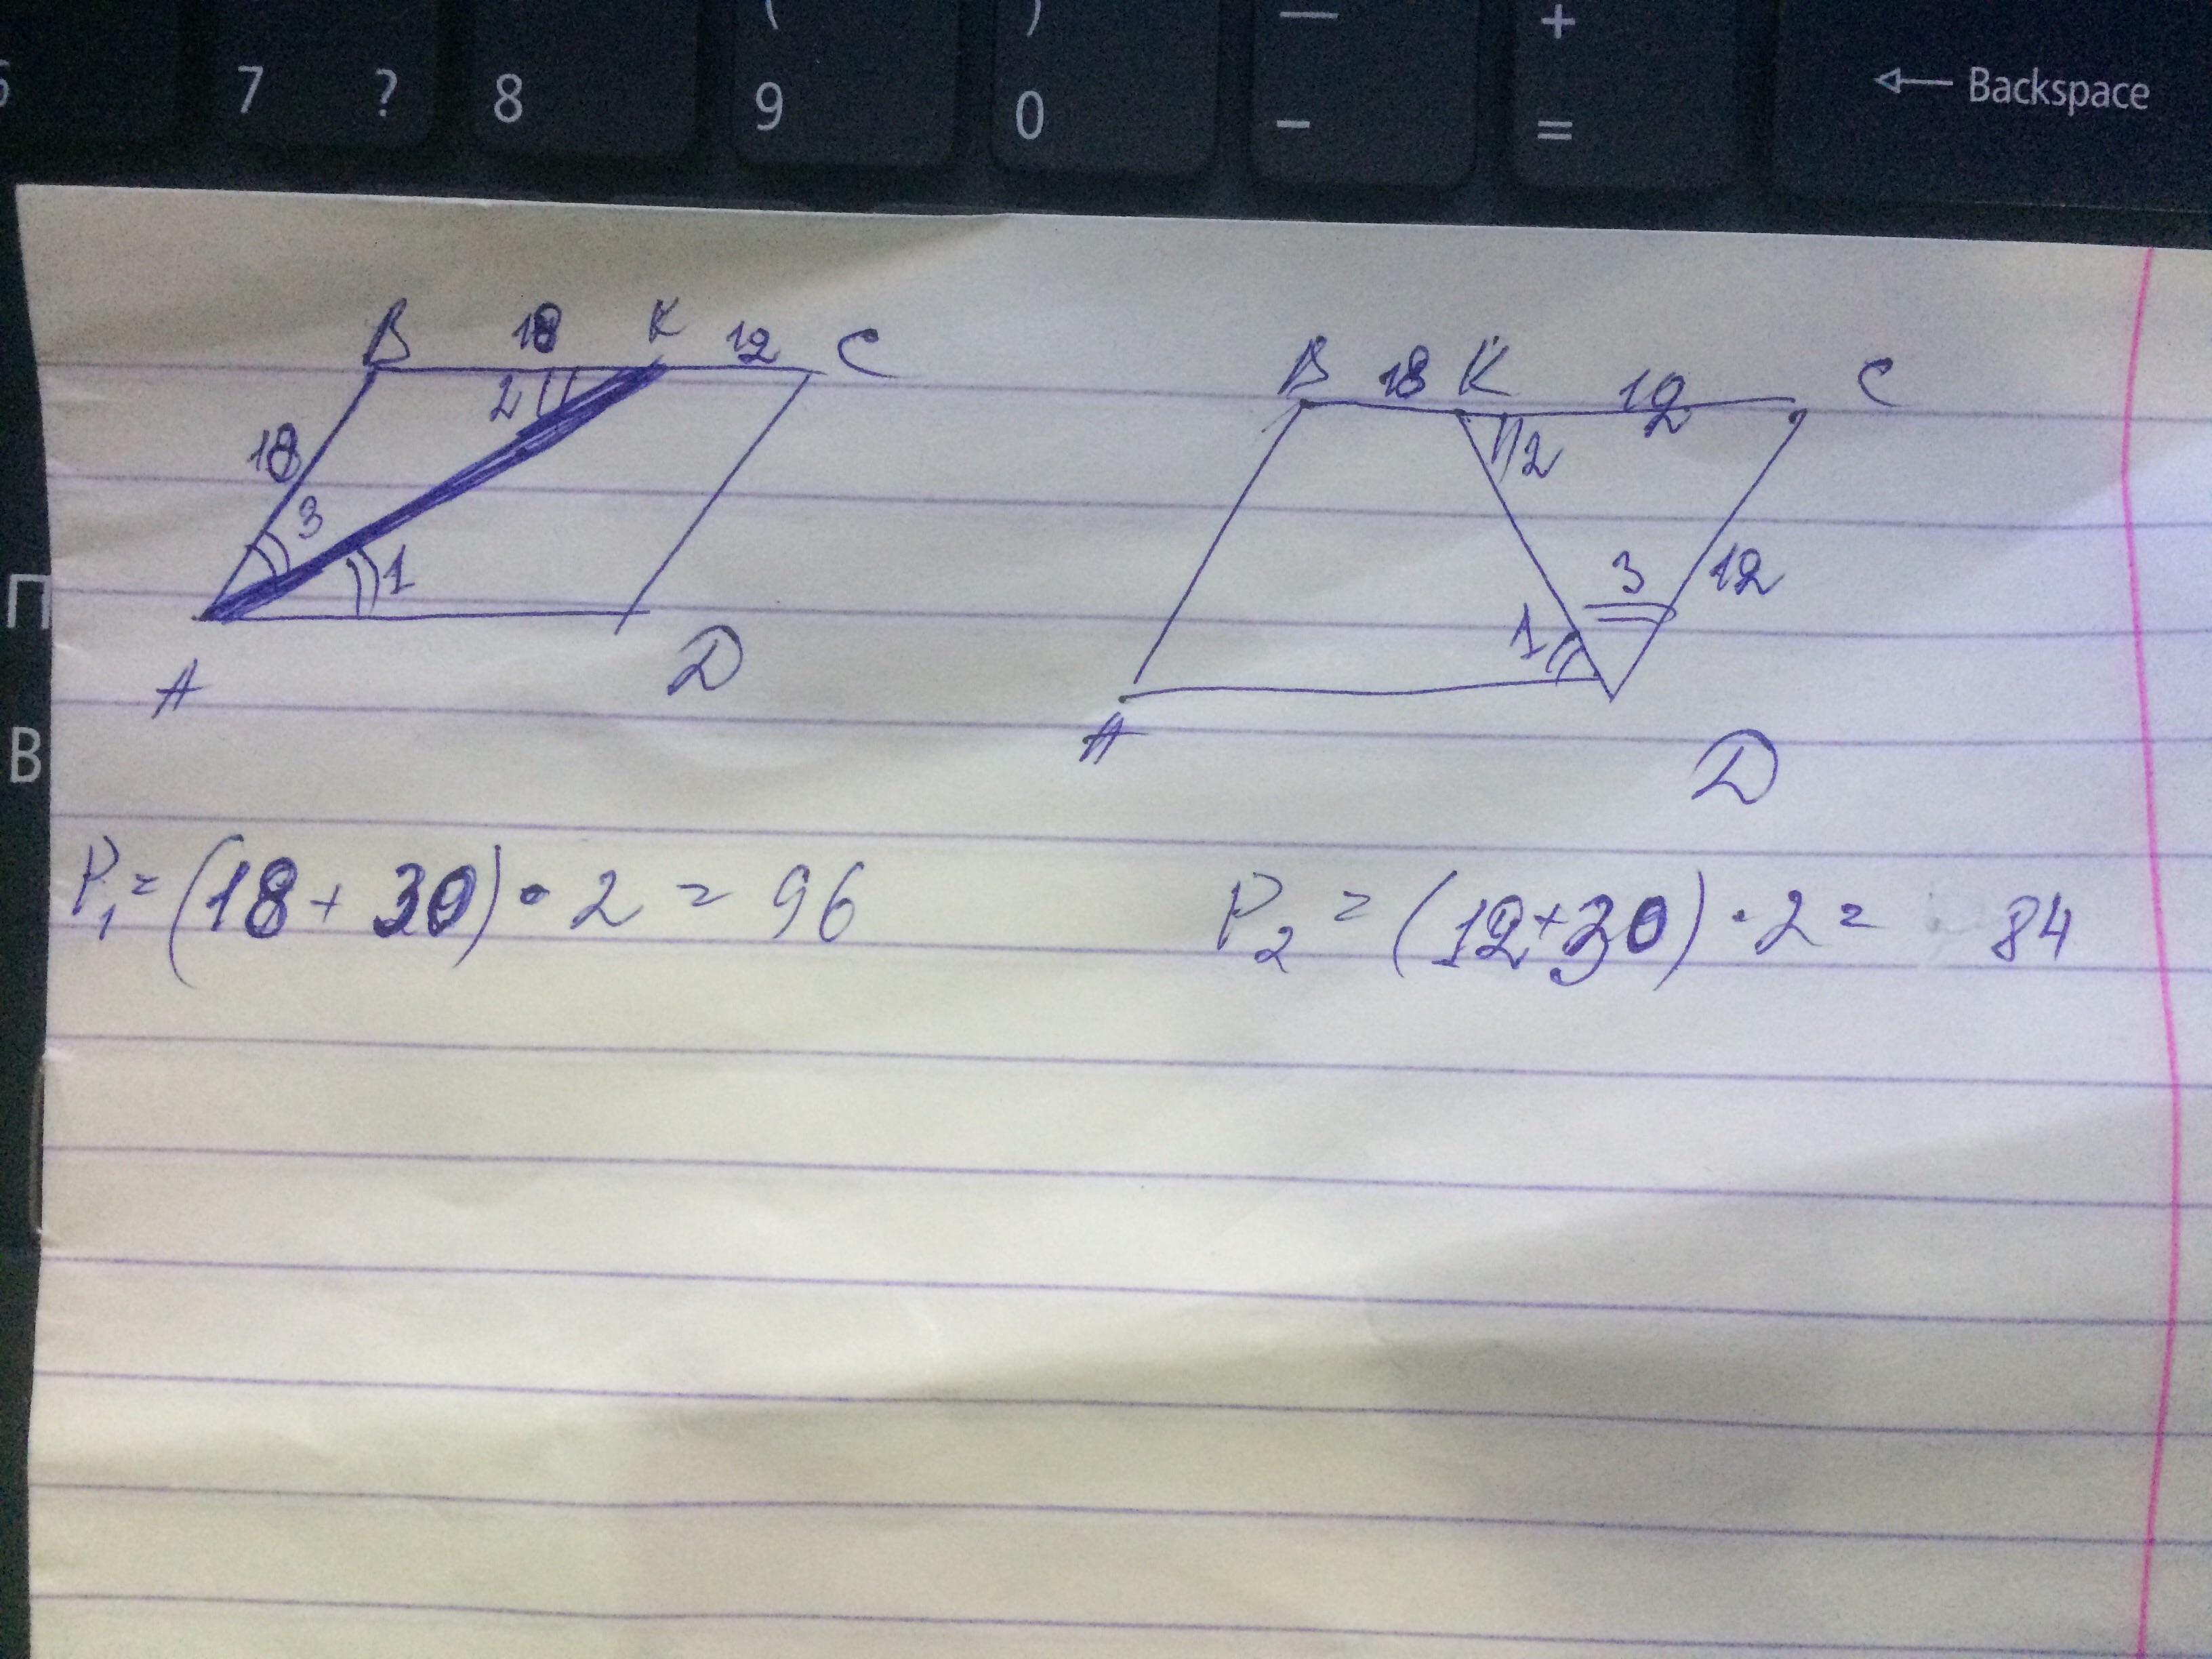 7 ? 8 ( 9 ) 0 — - + = Backspace
П
В
B 18 K 12 C
2
18
3
1
A D
B 18 K 12 C
2
3 12
1
A
D
P₁ = (18 + 30) · 2 = 96
P₂ = (12 + 30) · 2 = 84